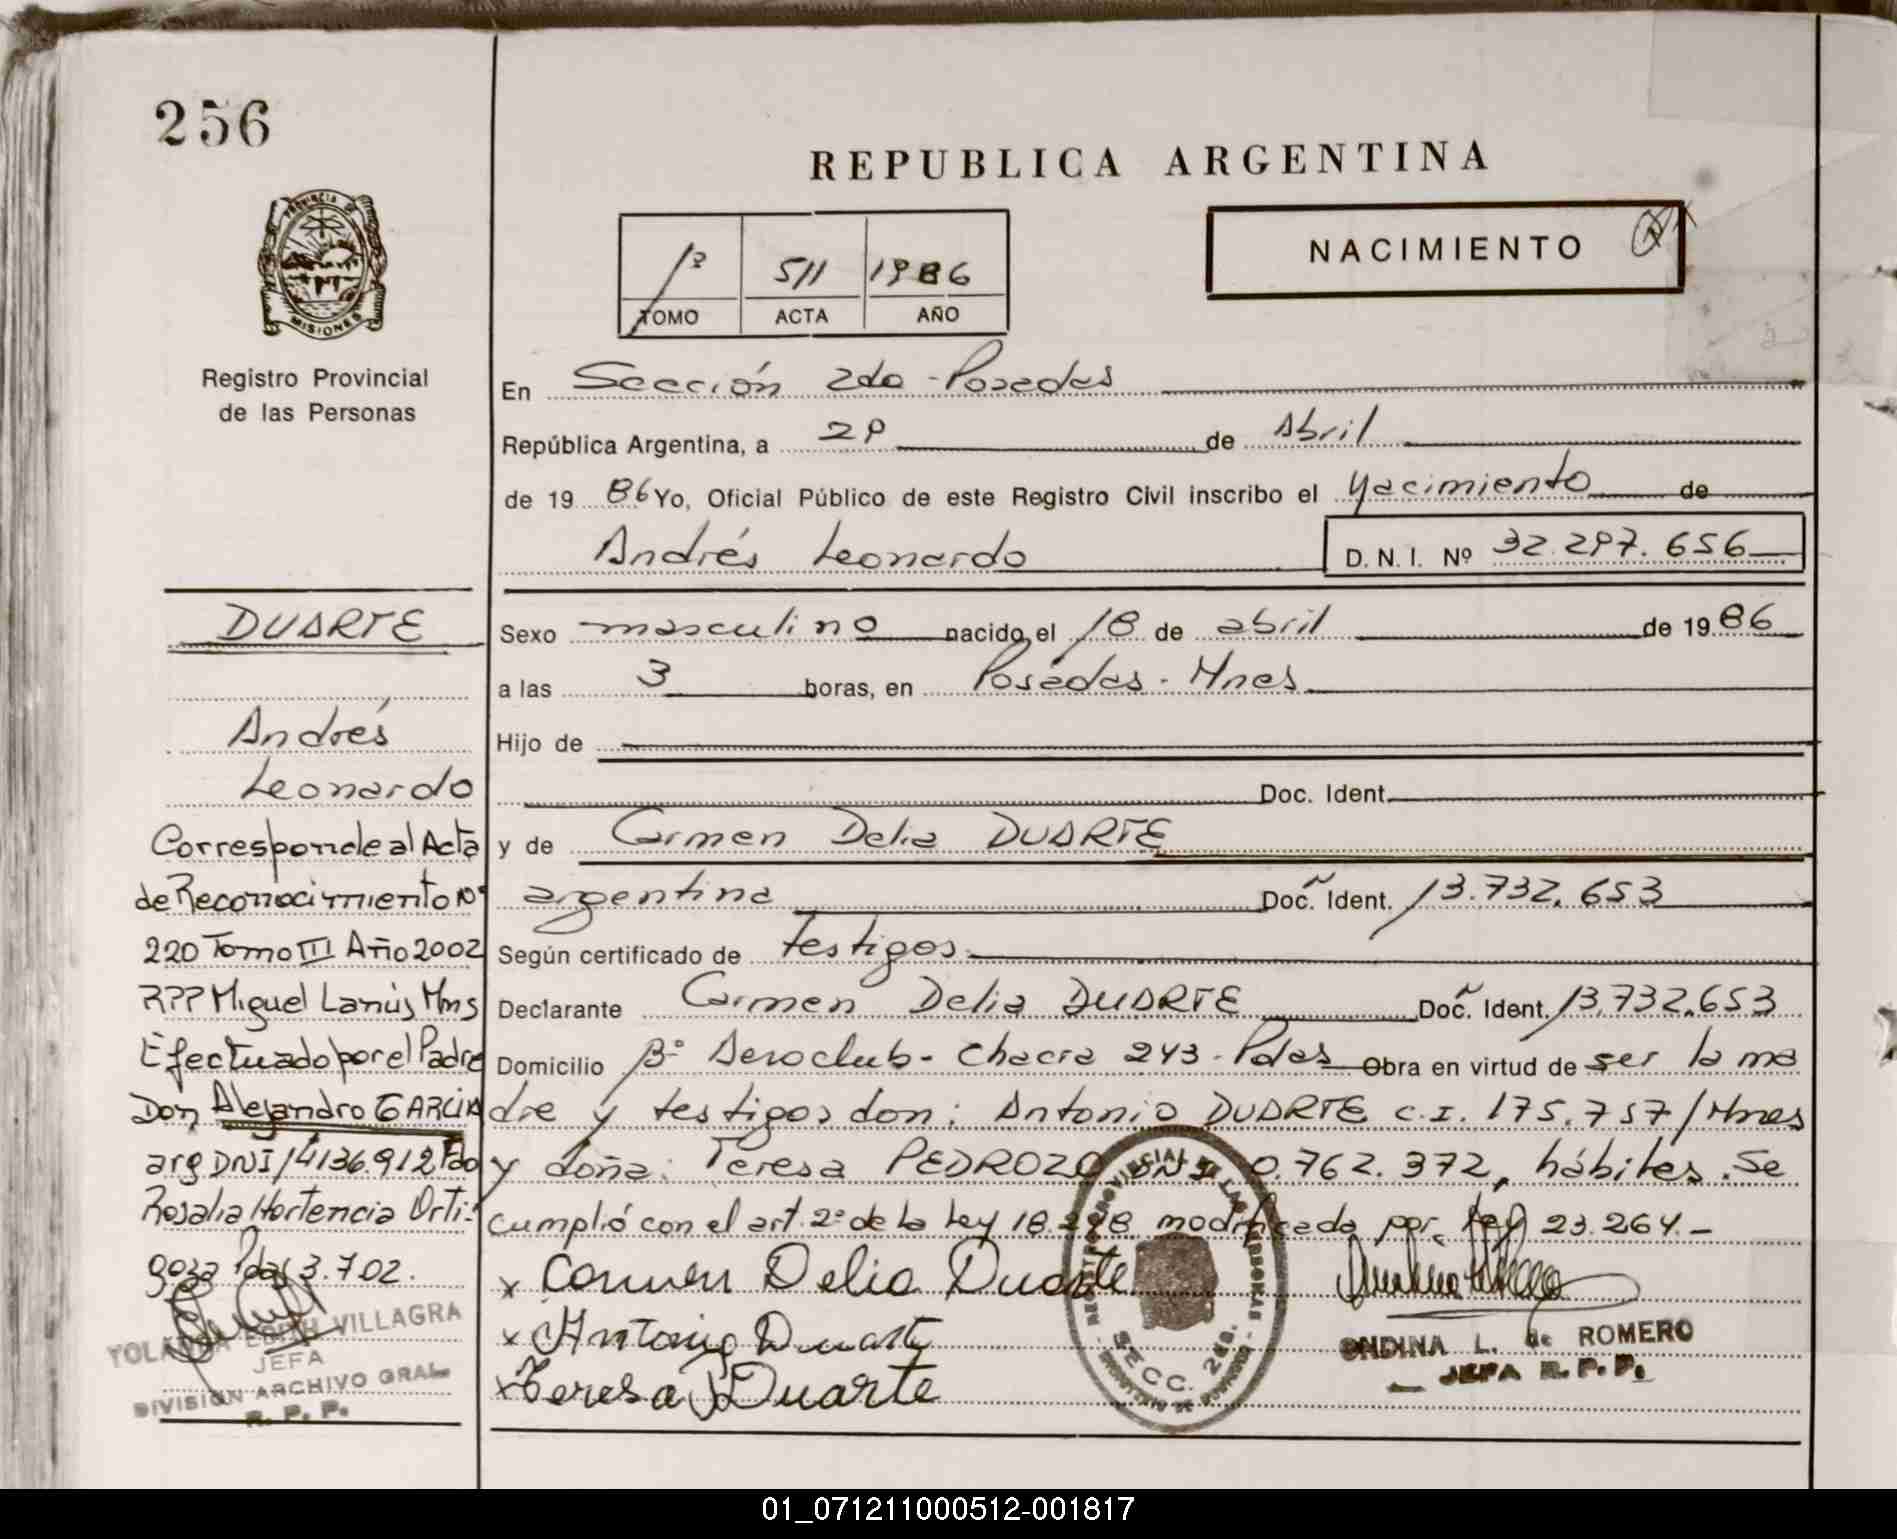 256
REPUBLICA ARGENTINA
PROVINCIA DE
MISIONES
Registro Provincial
de las Personas
1º 511 1986
TOMO ACTA AÑO
NACIMIENTO
En Sección 2da - Posadas
República Argentina, a 29 de Abril
de 1986 Yo, Oficial Público de este Registro Civil inscribo el Nacimiento de
Andrés Leonardo D. N. I. Nº 32.297.656
Sexo masculino nacido el 18 de abril de 1986
a las 3 horas, en Posadas - Mnes
Hijo de
Doc. Ident.
y de Carmen Delia DUARTE
argentina Doc. Ident. 13.732.653
Según certificado de testigos
Declarante Carmen Delia DUARTE Doc. Ident. 13.732.653
Domicilio Bº Aeroclub - Chacra 243 - Pdas Obra en virtud de ser la ma
dre y testigos don: Antonio DUARTE C.I. 175.757/Mnes
y doña: Teresa PEDROZO DNI 0.762.372, hábiles. Se
cumplió con el art. 2º de la Ley 18.248 modificada por Ley 23.264.-
x Carmen Delia Duarte
x Antonio Duarte
x Teresa Duarte
SECC. 2da.
ONDINA L. de ROMERO
JEFA R. P. P.
DUARTE
Andrés
Leonardo
Corresponde al Acta
de Reconocimiento Nº
220 Tomo III Año 2002
RPP Miguel Lanús Mns
Efectuado por el Padre
Don Alejandro GARCIA
arg DNI 14136.912 Fdo
Rosalia Hortencia Orti-
goza Pdas 3.7.02.
YOLANDA EDITH VILLAGRA
JEFA
DIVISION ARCHIVO GRAL.
R. P. P.
01_071211000512-001817